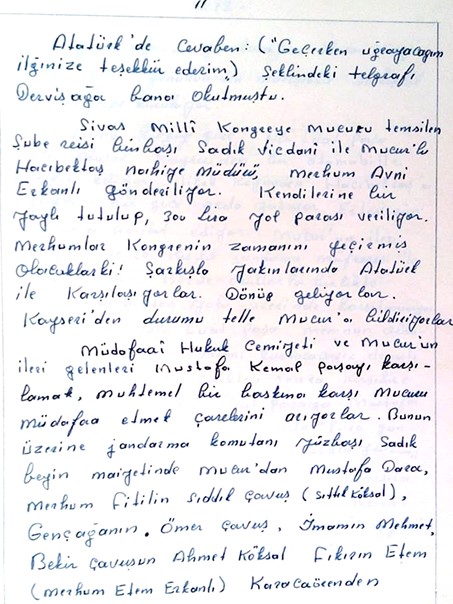 11
Atatürk'de Cevaben: ("Geçerken uğrayacağım
ilginize teşekkür ederim) Şeklindeki telgrafı
Dervişağa bana Okutmuştu.
Sivas Millî Kongreye Mucuru temsilen
Şube reisi binbaşı Sadık Vicdani ile Mucur'lu
Hacıbektaş nahiye Müdürü, Merhum Avni
Erkanlı gönderiliyor. Kendilerine bir
Yaylı tutulup, 300 lira yol parası veriliyor.
Merhumlar Kongrenin zamanını geçirmiş
Olacaklarki! Şarkışla yakınlarında Atatürk
ile Karşılaşıyorlar. Dönüş geliyorlar.
Kayseri'den durumu telle Mucur'a bildiriyorlar
Müdafaaî Hukuk Cemiyeti ve Mucur'un
ileri gelenleri Mustafa Kemal paşayı karşı-
lamak, muhtemel bir baskına karşı Mucuru
müdafaa etmek çarelerini arıyorlar. Bunun
üzerine jandarma komutanı yüzbaşı Sadık
beyin maiyetinde Mucur'dan Mustafa Daca,
Merhum Fitilin Sıddık Çavuş (Sıtkı Köksal),
Gençağanın, Ömer Çavuş, İmamın Mehmet,
Bekir Çavuşun Ahmet Köksal Fıkızın Etem
(merhum Etem Erkanlı) Karacaörenden